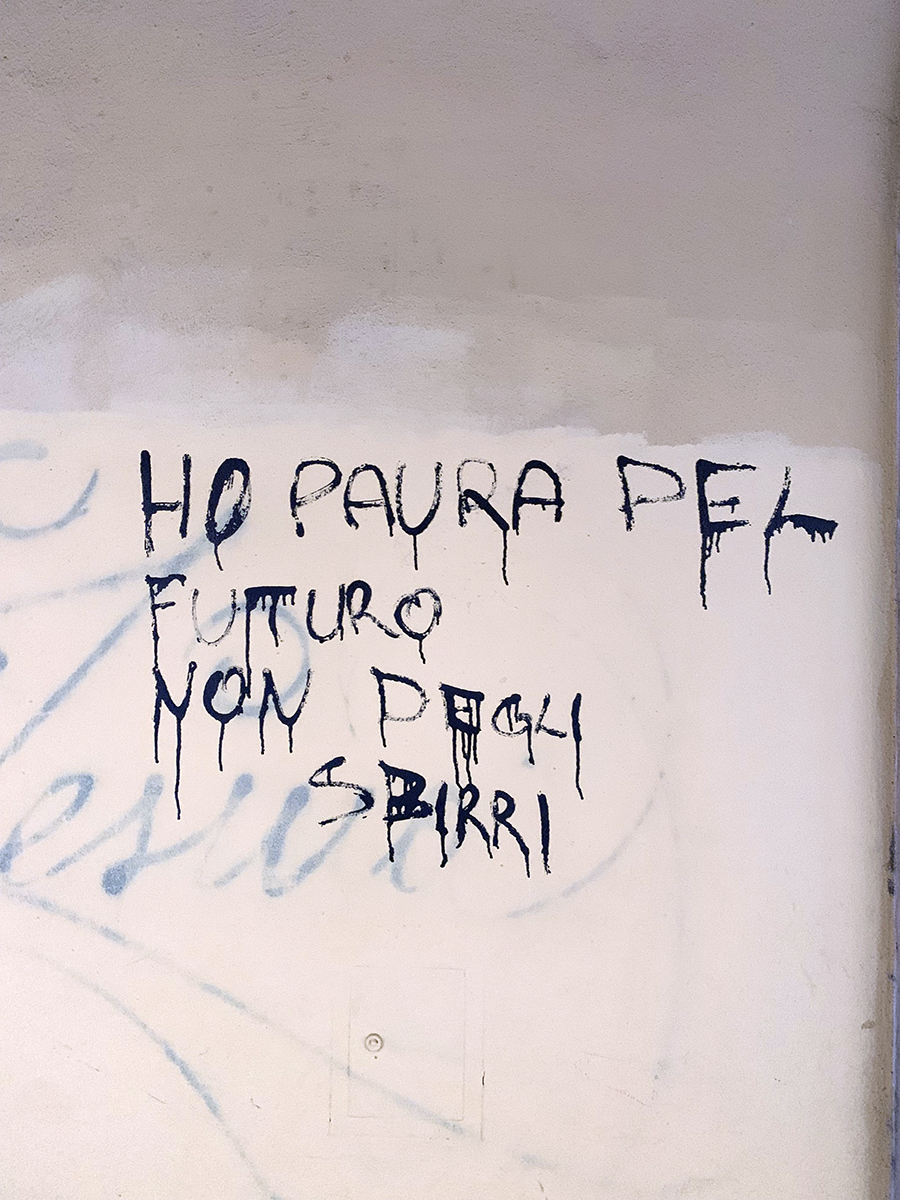 HO PAURA DEL
FUTURO
NON DEGLI
SBIRRI